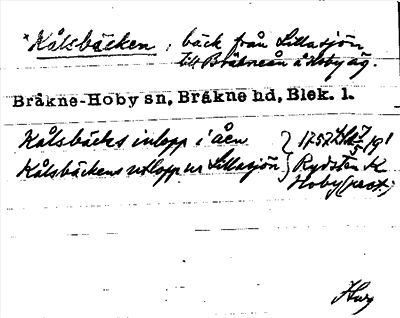 *Kålsbäcken, bäck från Lillasjön
till Bräkneån å Hoby äg.
Bräkne-Hoby sn, Bräkne hd, Blek. l.
Kålsbäcks inlopp i åen } 1757
Kålsbäckens utlopp ur Lillasjön } Rydsten K
Hoby (prot.)